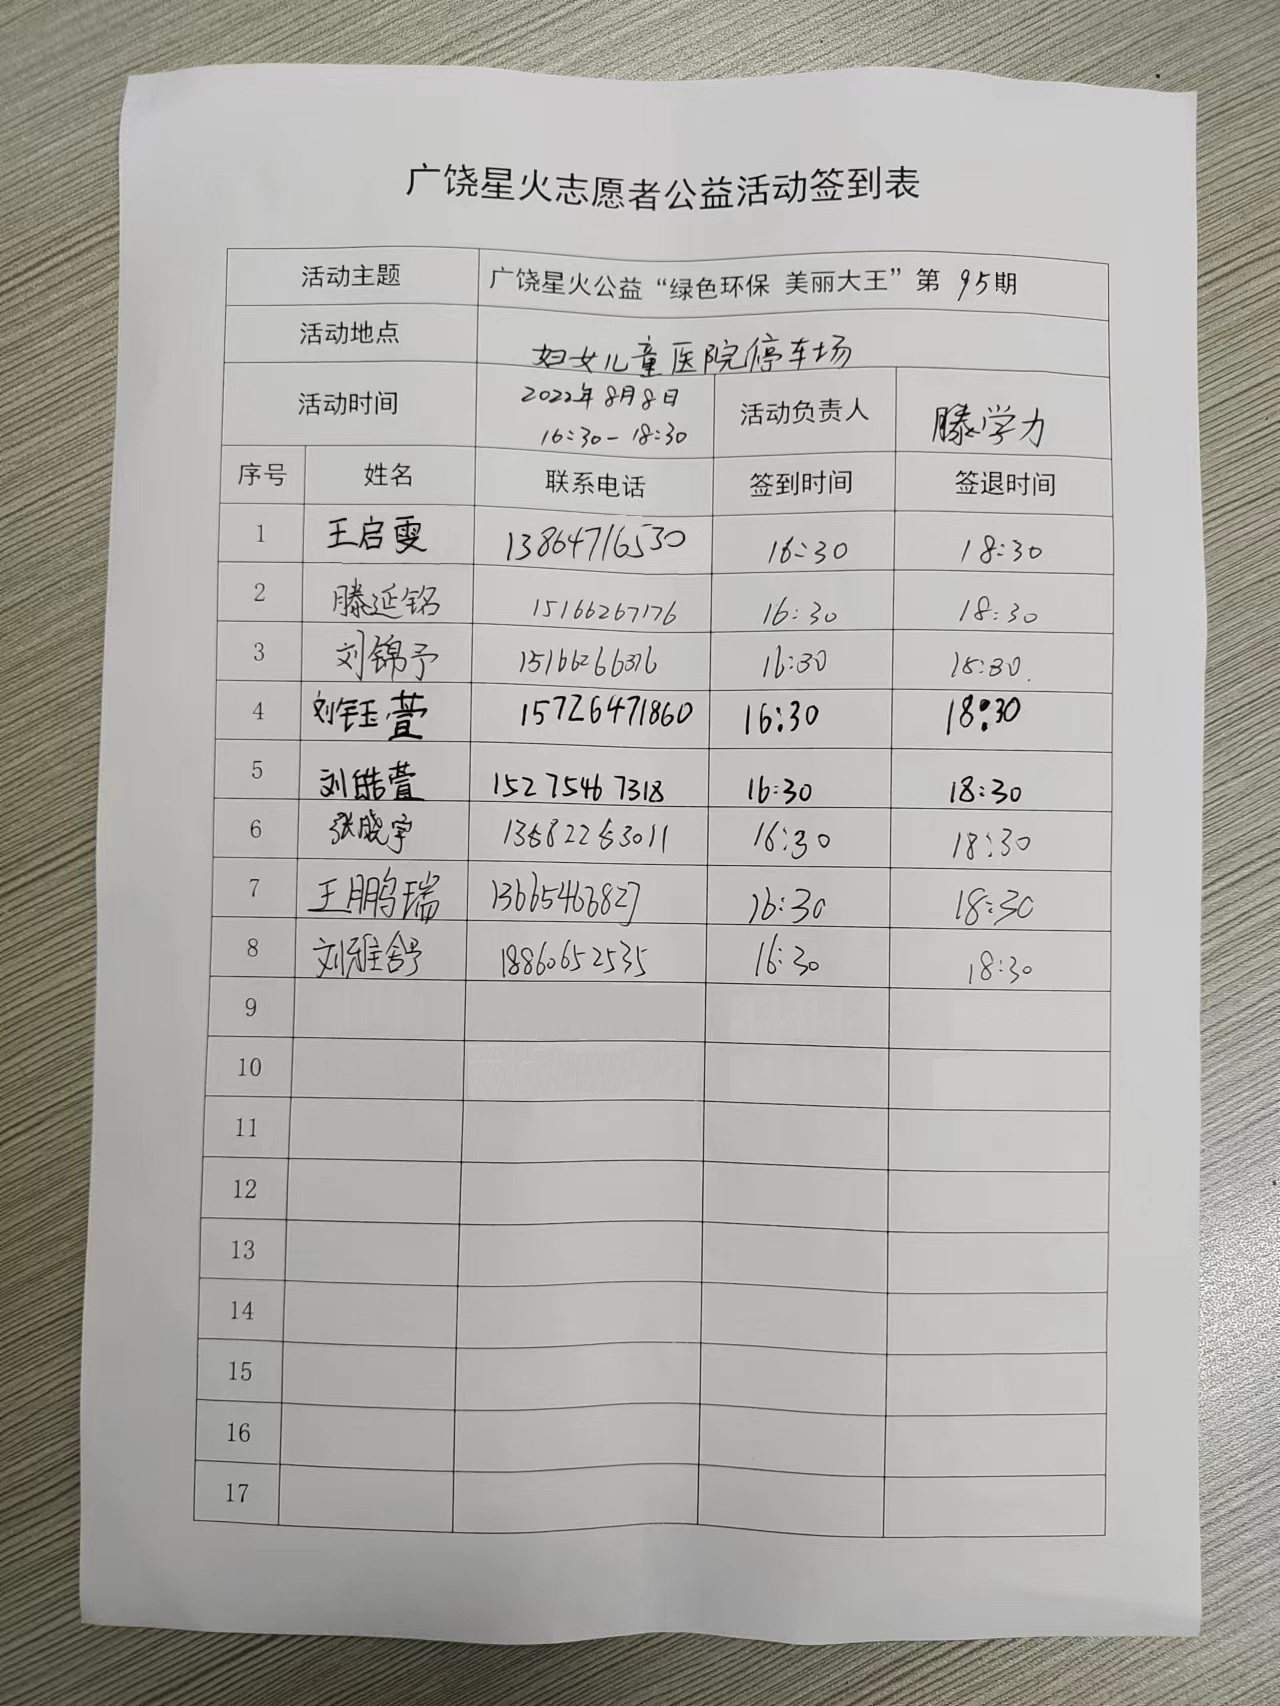 广饶星火志愿者公益活动签到表
活动主题 广饶星火公益“绿色环保 美丽大王”第95期
活动地点 妇女儿童医院停车场
活动时间 2022年8月8日 16:30-18:30 活动负责人 滕学力
序号 姓名 联系电话 签到时间 签退时间
1 王启雯 13864716530 16:30 18:30
2 滕延铭 15166267176 16:30 18:30
3 刘锦予 15166266316 16:30 18:30.
4 刘钰萱 15726471860 16:30 18:30
5 刘皓萱 15275467318 16:30 18:30
6 张晓宇 16:30 18:30
7 王鹏瑞 13665463827 16:30 18:30
8 刘雅舒 18860652535 16:30 18:30
9
10
11
12
13
14
15
16
17